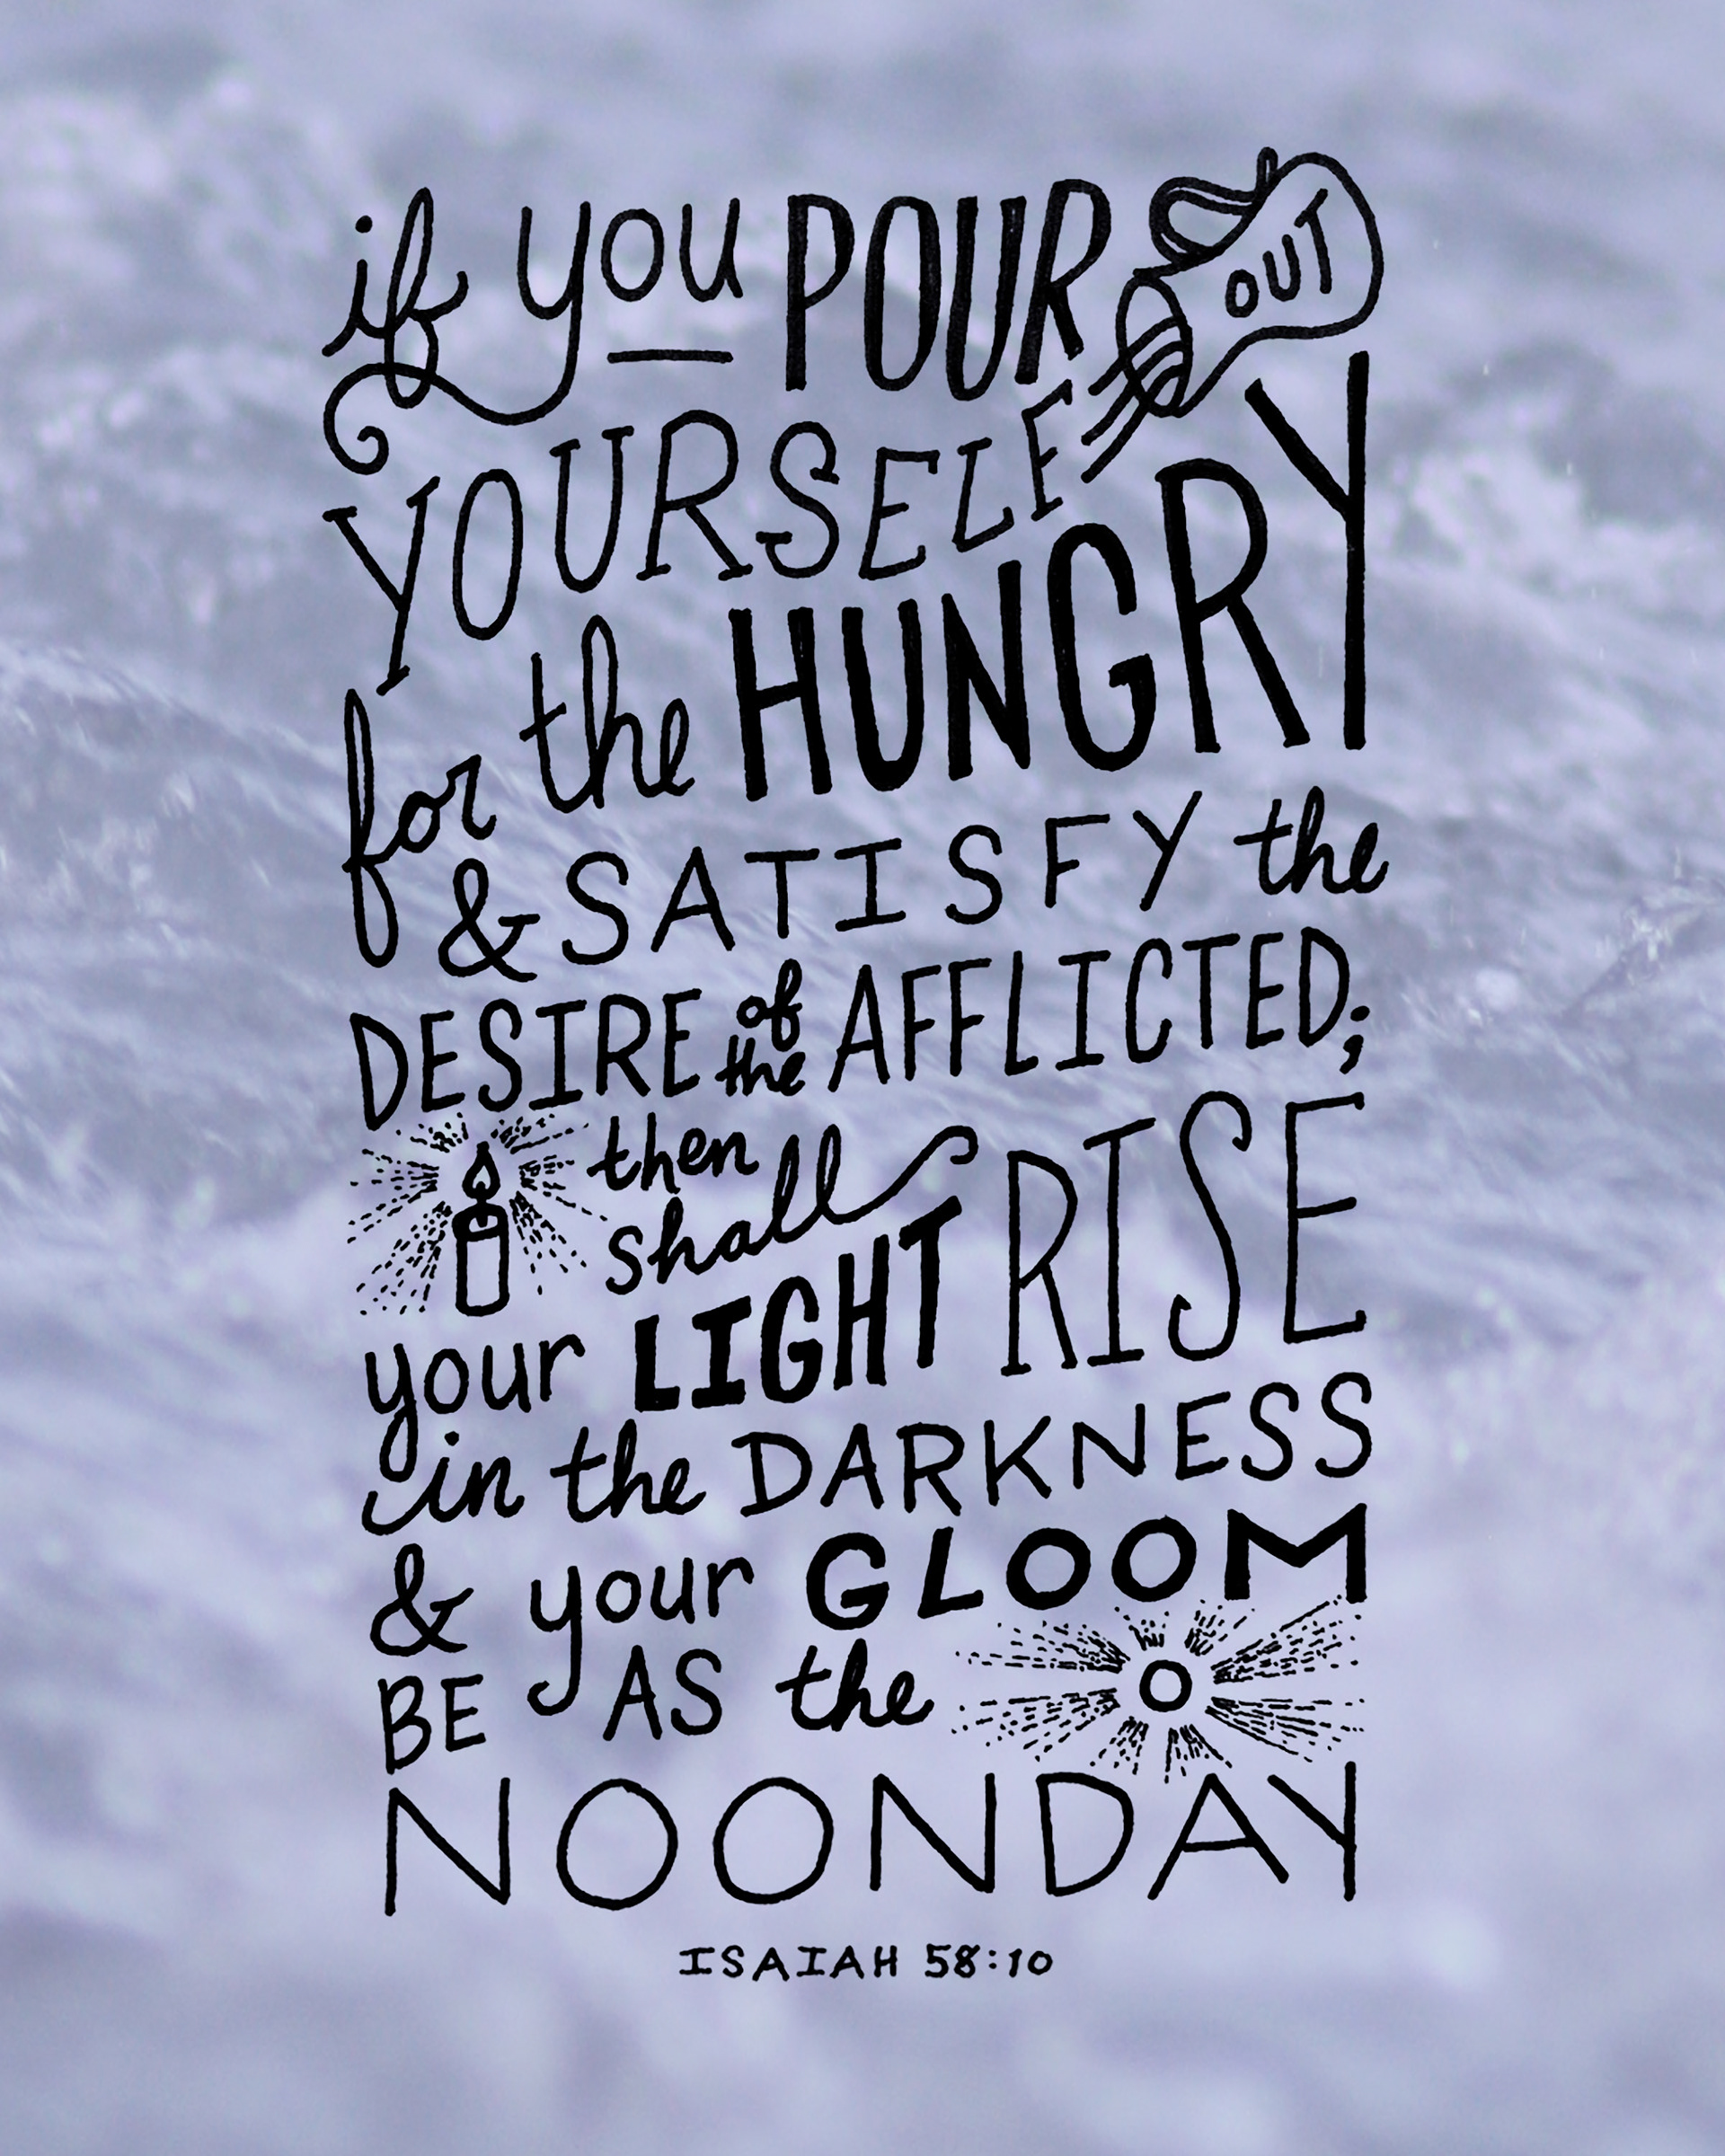 if you POUR OUT
YOURSELF
for the HUNGRY
& SATISFY the
DESIRE of the AFFLICTED;
then
shall
your LIGHT RISE
in the DARKNESS
& your GLOOM
BE AS the
NOONDAY
ISAIAH 58:10